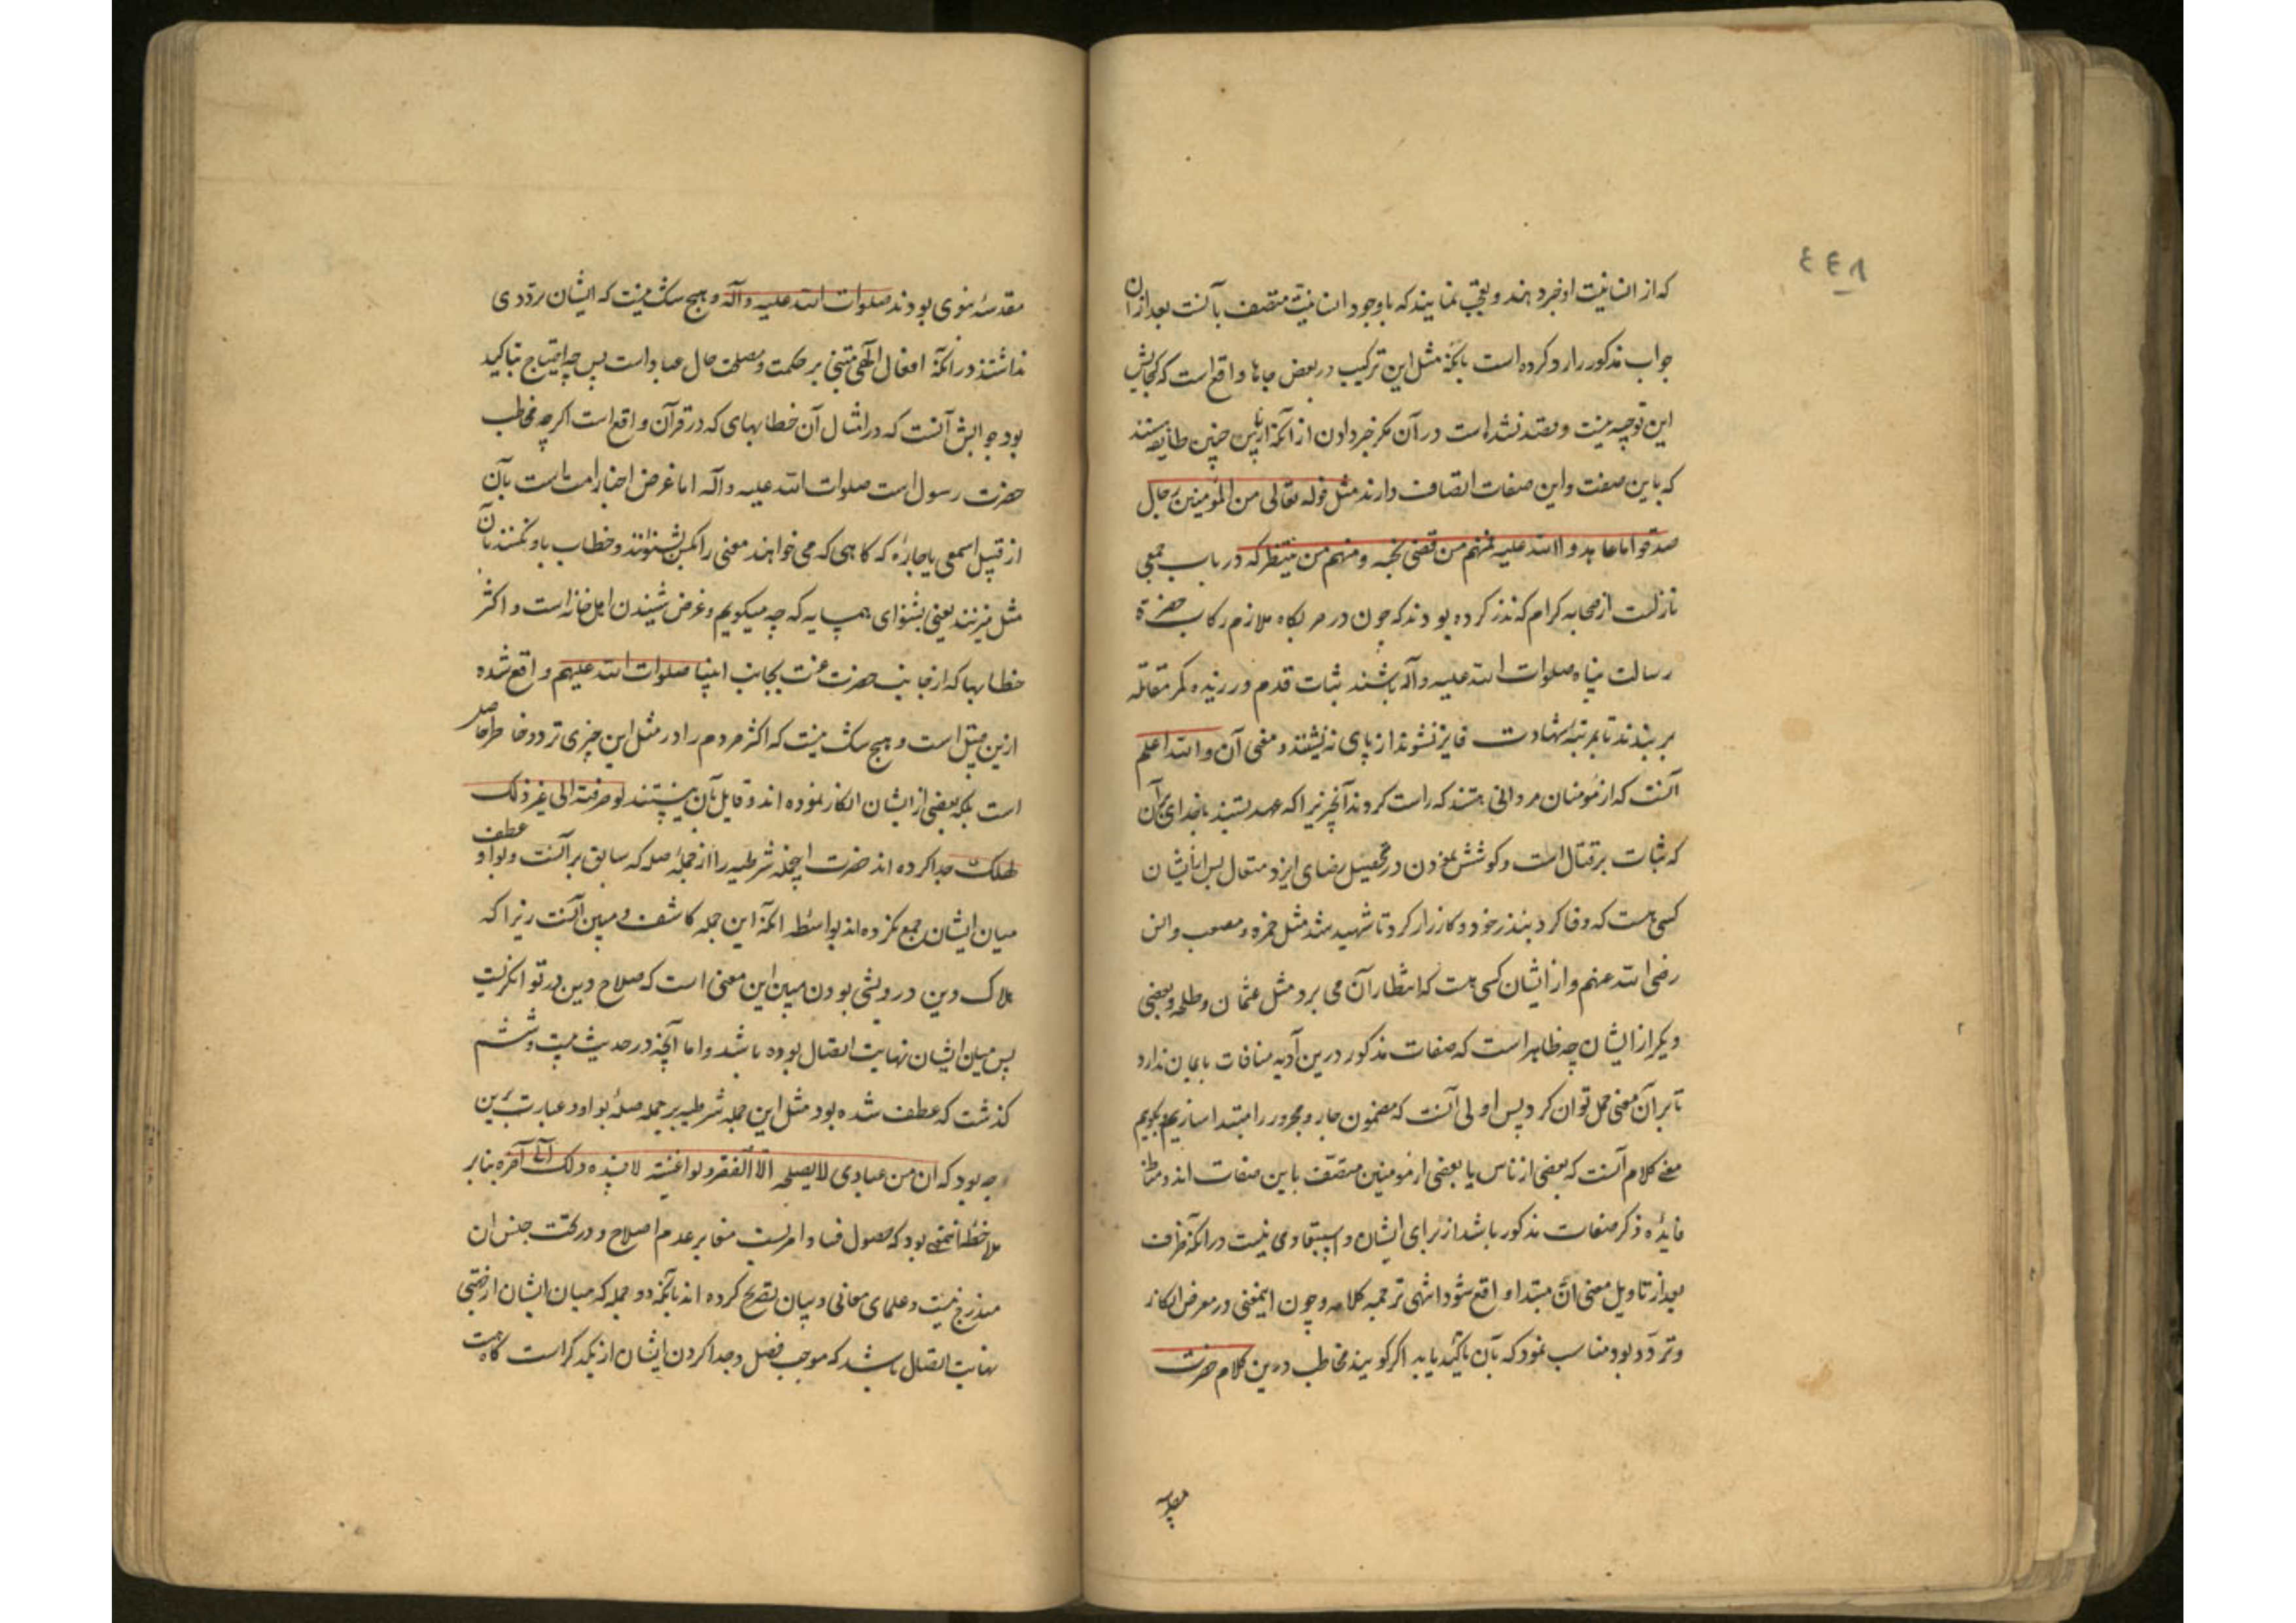 ٤٤٨
که از انسانیت او خبر دهند و تعجب نمایند که با وجود انسانیت متصف بآنست بعد از آن
جواب مذکور را رد کرده است بآنکه مثل این ترکیب در بعض جاها واقع است که گنجایش
این توجیه نیست و قصد نشده است در آن مگر خبر دادن از آنکه چنین طایفه هستند
که باین صفت و این صفات اتصاف دارند مثل قوله تعالی من المؤمنین رجال
صدقوا ما عاهدوا الله علیه فمنهم من قضی نحبه و منهم من ینتظر که در باب جمعی
نازلست از صحابه کرام که نذر کرده بودند که چون در معرکه ملازم رکاب حضرة
رسالت پناه صلوات الله علیه وآله باشند ثبات قدم ورزیده کمر مقاتله
بر بندند تا بمرتبه شهادت فایز نشوند از پای ننشینند و معنی آن والله اعلم
آنست که از مؤمنان مردانی هستند که راست کردند آنچیزیرا که عهد بستند با خدای بر آن
که ثبات بر قتال است و کوشش نمودن در تحصیل رضای ایزد متعال پس از ایشان
کسی هست که وفا کرد بنذر خود و کارزار کرد تا شهید شد مثل حمزه و مصعب و انس
رضی الله عنهم و از ایشان کسی هست که انتظار آن می برد مثل عثمان و طلحه و بعضی
دیگر از ایشان چه ظاهر است که صفات مذکور درین آیه منافات بایمان ندارد
تا بر آن معنی حمل توان کرد پس اولی آنست که مضمون جار و مجرور را مبتدا سازیم و بگوییم
معنی کلام آنست که بعضی از ناس یا بعضی از مومنین متصف باین صفات اند و مناط
فایده ذکر صفات مذکور باشد از برای ایشان و استبعادی نیست در آنکه ظرف
بعد از تاویل معنی آن مبتدا واقع شود انتهی ترجمه کلامه و چون اینمعنی در معرض انکار
و تردد بود مناسب نمود که بآن تاکید یابد اگر گویند مخاطب درین کلام حضرت
مقدسه
مقدسهٔ نبوی بودند صلوات الله علیه وآله و هیچ شک نیست که ایشان تردّدی
نداشتند در آنکه افعال الهی مبتنی بر حکمت و مصلحت حال عباد است پس چه احتیاج بتاکید
بود جوابش آنست که در امثال آن خطابهای که در قرآن واقع است اگر چه مخاطب
حضرت رسول است صلوات الله علیه وآله اما غرض اخبار امت است بآن
از قبیل اسمعی یا جاره که گاهی که می خواهند معنی را بکسی بشنوانند و خطاب باو نکنند بآن
مثل میزنند یعنی بشنو ای همسایه که چه میگویم و غرض شنیدن اهل خانه است و اکثر
خطابها که از جانب حضرت عزت بجانب انبیا صلوات الله علیهم واقع شده
ازین قبیل است و هیچ شک نیست که اکثر مردم را در مثل این چیزی تردد خاطر حاصل
است بلکه بعضی از ایشان انکار نموده اند و قایل بآن نیستند لو صرفته الی غیر ذلک
لهلک جدا کرده اند حضرت اینجمله شرطیه را از جمله صله که سابق بر آنست و بواو عطف
میان ایشان جمع نکرده اند بواسطه آنکه این جمله کاشف و مبین آنست زیرا که
هلاک دین در درویشی بودن مبین این معنی است که صلاح دین در توانگریست
پس میان ایشان نهایت اتصال بوده باشد و اما آنچه در حدیث بیست و ششم
گذشت که عطف شده بود مثل این جمله شرطیه بر جمله صله بواو و عبارت برین
وجه بود که ان من عبادی لا یصلحه الا الفقر و لو اغنیته لافسده ذلک الی آخره بنابر
ملاحظهٔ اینمعنی بود که حصول فساد امریست مغایر عدم اصلاح و در تحت جنس آن
مندرج نیست و علمای معانی و بیان تصریح کرده اند بآنکه دو جمله که میان ایشان از جهتی
نهایت اتصال باشد که موجب فصل و جدا کردن ایشان از یکدیگر است گاه هست